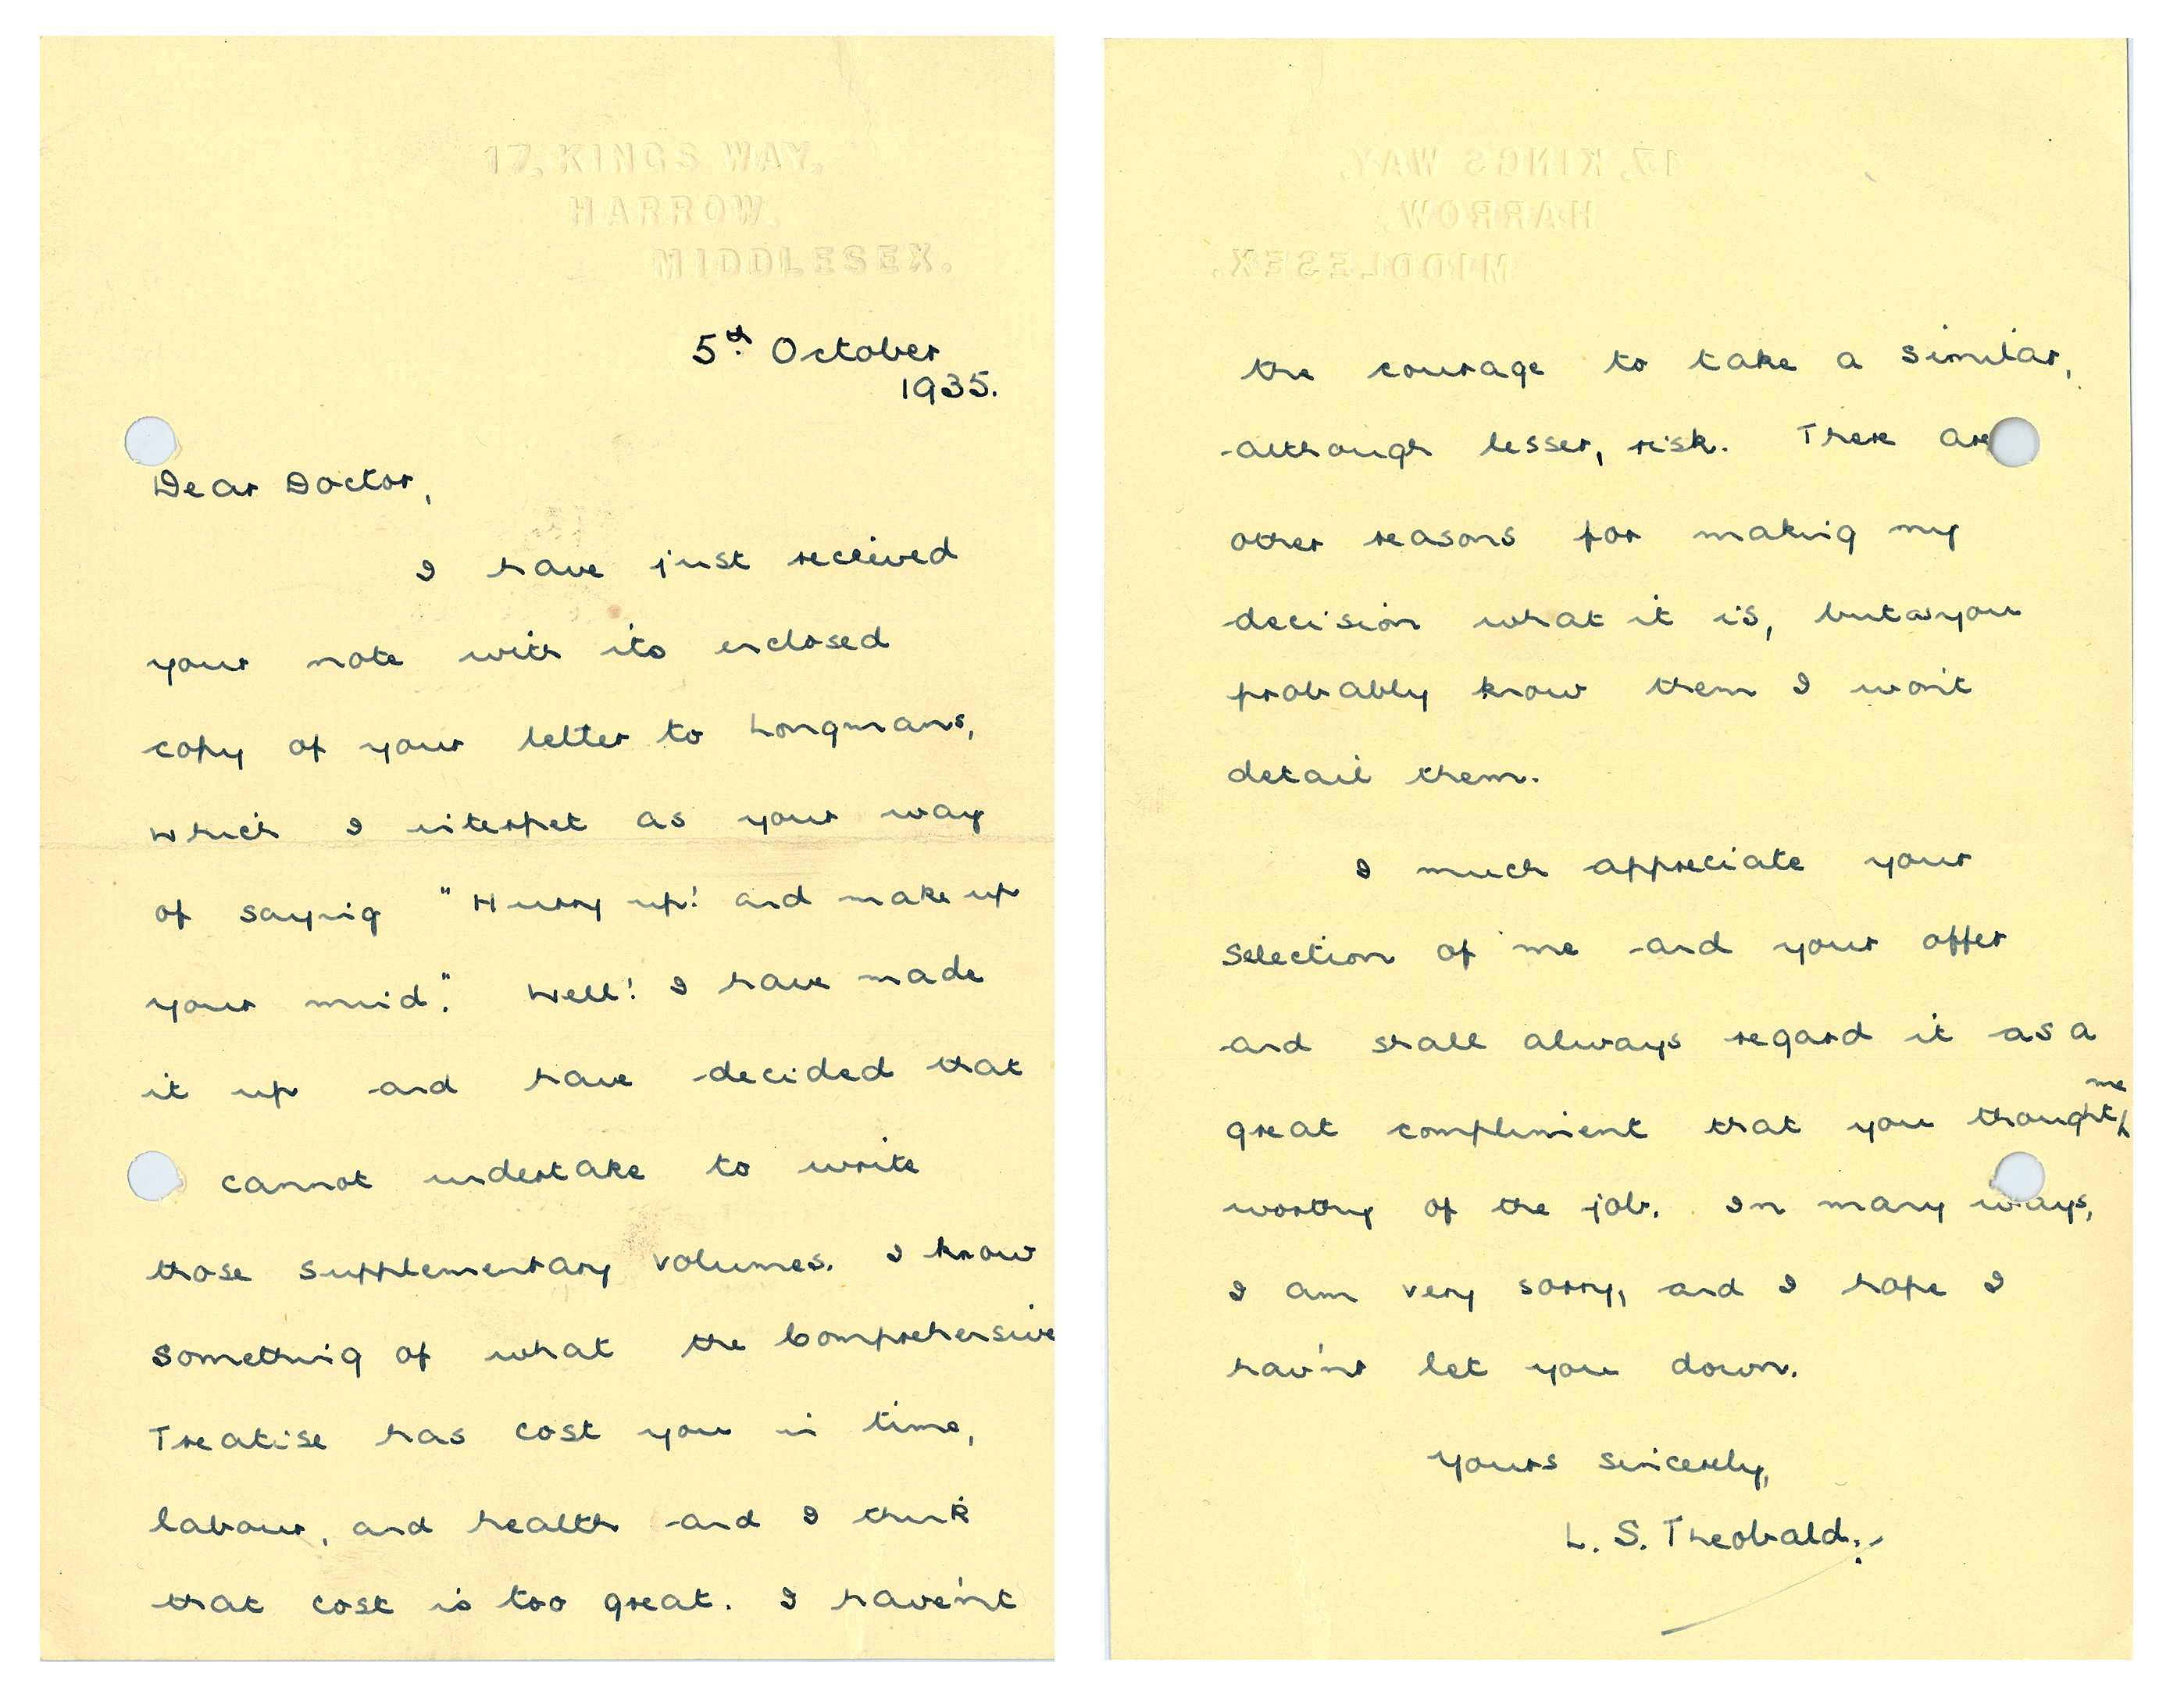 17, KINGS WAY,
HARROW,
MIDDLESEX.
5th October
1935.
Dear Doctor,
I have just received
your note with its enclosed
copy of your letter to Longmans,
which I interpret as your way
of saying "Hurry up! and make up
your mind." Well! I have made
it up and have decided that
cannot undertake to write
those supplementary volumes. I know
something of what the Comprehensive
Treatise has cost you in time,
labour, and health and I think
that cost is too great. I have'nt
17, KINGS WAY,
HARROW,
MIDDLESEX.
the courage to take a similar,
although lesser, risk. There are
other reasons for making my
decision what it is, but as you
probably know them I won't
detail them.
I much appreciate your
selection of me and your offer
and shall always regard it as a
me
great compliment that you thought
worthy of the job. In many ways,
I am very sorry, and I hope I
hav'nt let you down.
Yours sincerely,
L. S. Theobald.